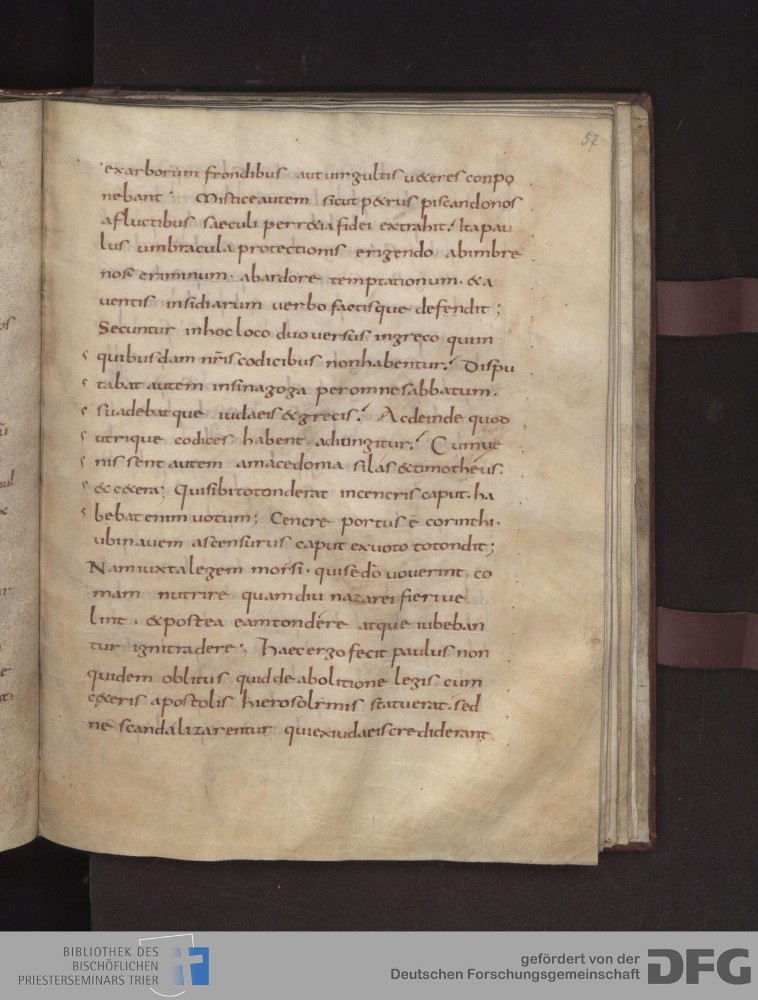 57
ex arborum frondibus aut uirgultis ueteres conpo
nebant. Mistice autem sicut petrus piscando nos
a fluctibus saeculi per retia fidei extrahit. Ita pau
lus umbracula protectionis erigendo ab imbre
nos criminum. ab ardore temptationum. & a
uentis insidiarum uerbo factisque defendit;
Secuntur in hoc loco duo uersus in greco qui in
quibusdam nr̄is codicibus non habentur. Dispu
tabat autem in sinagoga per omne sabbatum.
suadebatque iudaeis & grecis. Ac deinde quod
utrique codices habent adiungitur. Cum ue
nissent autem a macedonia silas & timotheus.
& cetera; Qui sibi totonderat in cencris caput. ha
bebat enim uotum; Cencre portus ē corinthi.
ubi nauem ascensurus caput ex uoto totondit;
Nam iuxta legem mosi. qui se dō uouerint. co
mam nutrire quamdiu nazarei fieri ue
lint. & postea eam tondere atque iubeban
tur igni tradere; Haec ergo fecit paulus non
quidem oblitus quid de abolitione legis cum
ceteris apostolis hierosolimis statuerat. sed
ne scandalizarentur qui ex iudaeis crediderant
BIBLIOTHEK DES
BISCHÖFLICHEN
PRIESTERSEMINARS TRIER
gefördert von der
Deutschen Forschungsgemeinschaft
DFG